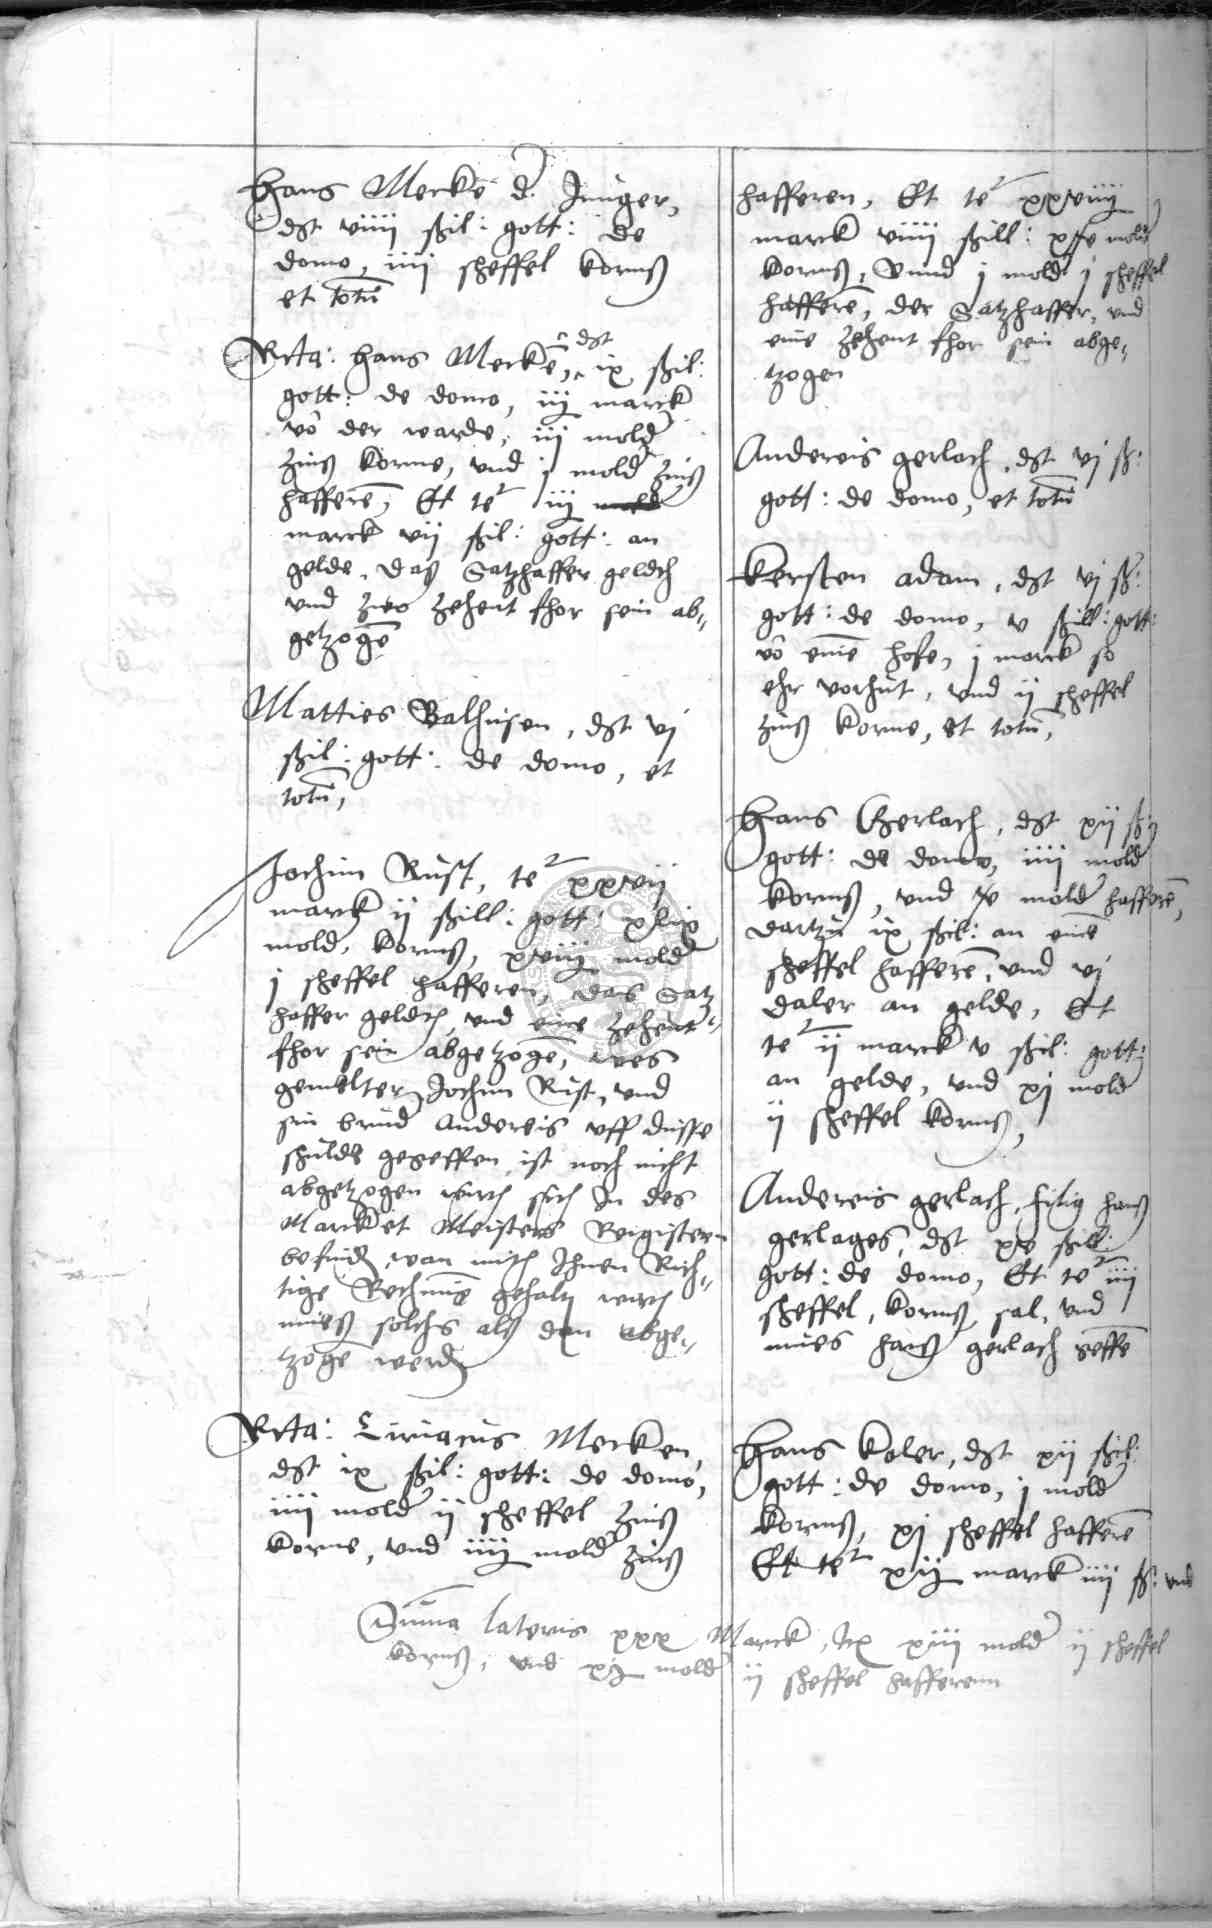 Hans Mercke d. Junger,
dst viiij ßil: gott: de
domo, iiij scheffel kornß
et totū
Rta: Hans Merckē, dst ix ßil:
gott: de domo, iij marck
vō der warde, iij mold
zinß korns, vnd j mold zinß
hafferē, Et te iij mold
marck vij ßil: gott: an
gelde, Daß Satzhaffer geldch
vnd zwo zehent fhor sein ab-
getzogē
Matties Balhusen, dst vj
ßil: gott: de domo, et
totū,
Jochim Rust, te xxvij
marck ij ßill: gott: xlix
mold, kornß, xviiij mold
j scheffel hafferen, das Satz
haffer geldch, vnd eine zehent
fhor sein abgetzogē, wes
gemelter Jochim Rust, vnd
sin brud Andereis vff disse
schulde geseffen, ist noch nicht
abgetzogen wirt sich In des
Marcket Meisters Reigistern
befind, wan mith Ihnen Rich-
tige Rechnūg gehaltē wirt
mueß solchs alß dan abge-
tzogē werdē
Rta: Ciriacus Mercken,
dst ix ßil: gott: de domo,
iiij mold ij scheffel zinß
korne, vnd iiij mold zinß
hafferen, Et te xxviiij
marck viiij ßill: xv mold
kornß, Vnnd j mold j scheffel
hafferē, der Satzhaffer, vnd
eine zehent fhor sein abge-
tzogen
Andereis gerlach, dst vj ß:
gott: de domo, et totū
Kersten adam, dst vj ß:
gott: de domo, v ßill: gott:
vō eine hofe, j marck so
ehr vorhūt, vnd ij scheffel
zinß korne, et totū,
Hans Gerlach, dst xij ß:
gott: de domo, iiij mold
kornß, vnd v mold hafferē,
dartzu ix ßil: an eine
scheffel hafferē, vnd vj
daler an gelde, Et
te ij marck v ßil: gott:
an gelde, vnd xj mold
ij scheffel kornß,
Andereis gerlach, filig hanß
gerlages, dst xv ßill:
gott: de domo, Et te iiij
scheffel, kornß sal, vnd
mues hanß gerlach geffē
Hans koler, dst xij ßil:
gott: de domo, j mold
kornß, xj scheffel hafferē
Et te xij marck iiij ß: vnd
Suma lateris xxx Marck, xiij mold ij scheffel
kornß, vnd xj mold ij scheffel hafferenn